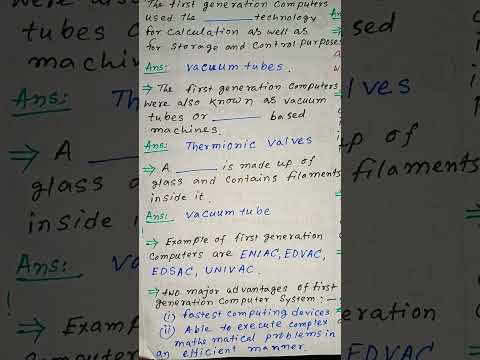 The first generation computers
used the ________ technology
for calculation as well as
for storage and control purposes
Ans: vacuum tubes.
⇒ The first generation computers
were also known as vacuum
tubes or ________ based
machines.
Ans: Thermionic valves
⇒ A ________ is made up of
glass and contains filaments
inside it.
Ans: vacuum tube
⇒ Example of first generation
computers are ENIAC, EDVAC,
EDSAC, UNIVAC.
⇒ two major advantages of first
generation computer system: -
(i) fastest computing devices
(ii) Able to execute complex
mathematical problems in
an efficient manner.